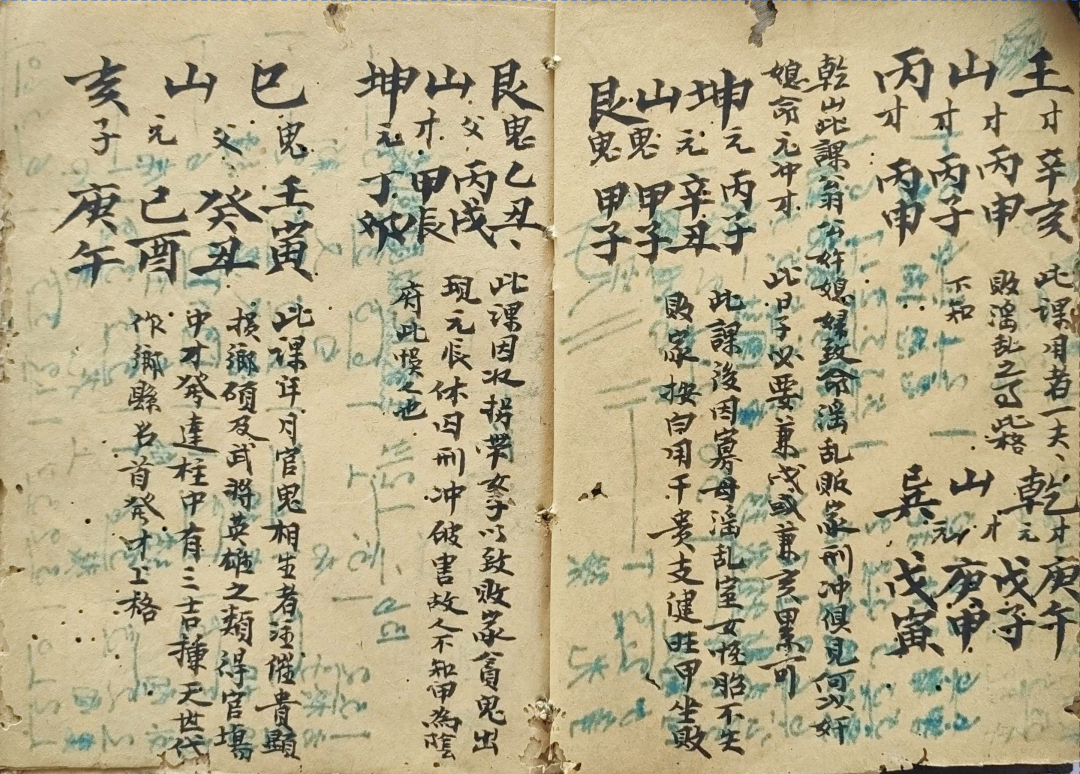 壬山丙
才 辛亥
才 丙申
才 丙子
才 丙申
此課用者一夫
敗淫乱之局此格
不知
乾山巽
才 庚午
元 戊子
才 庚申
元 戊寅
乾山此課翁公奸媳婦致命淫乱敗家刑冲俱見何以奸
媳命元冲才 此日子必要兼戌或兼亥累可
坤山艮
元 丙子
元 辛丑
鬼 甲子
鬼 甲子
此課後因寡母淫乱室女怪胎不生
敗家按白用干貴支健旺甲坐敗
艮山坤
鬼 乙丑
父 丙戌
才 甲辰
元 丁卯
此課因奴拐帶女子以致敗家貧鬼出
現元辰休囚刑冲破害故人不知甲為陰
府此悞之也
巳山亥
鬼 壬寅
父 癸丑
元 己酉
子 庚午
此課年月官鬼相生者注催貴顯
損鄉碩及武將英雄之類得官場
中才發達柱中有三吉種天世代
作鄉縣名首發才上格